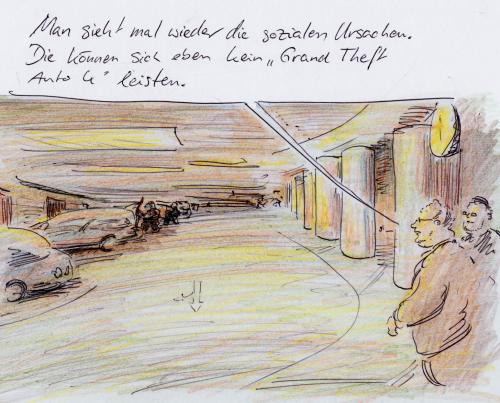 Man sieht mal wieder die sozialen Ursachen.
Die können sich eben kein „Grand Theft
Auto 4" leisten.